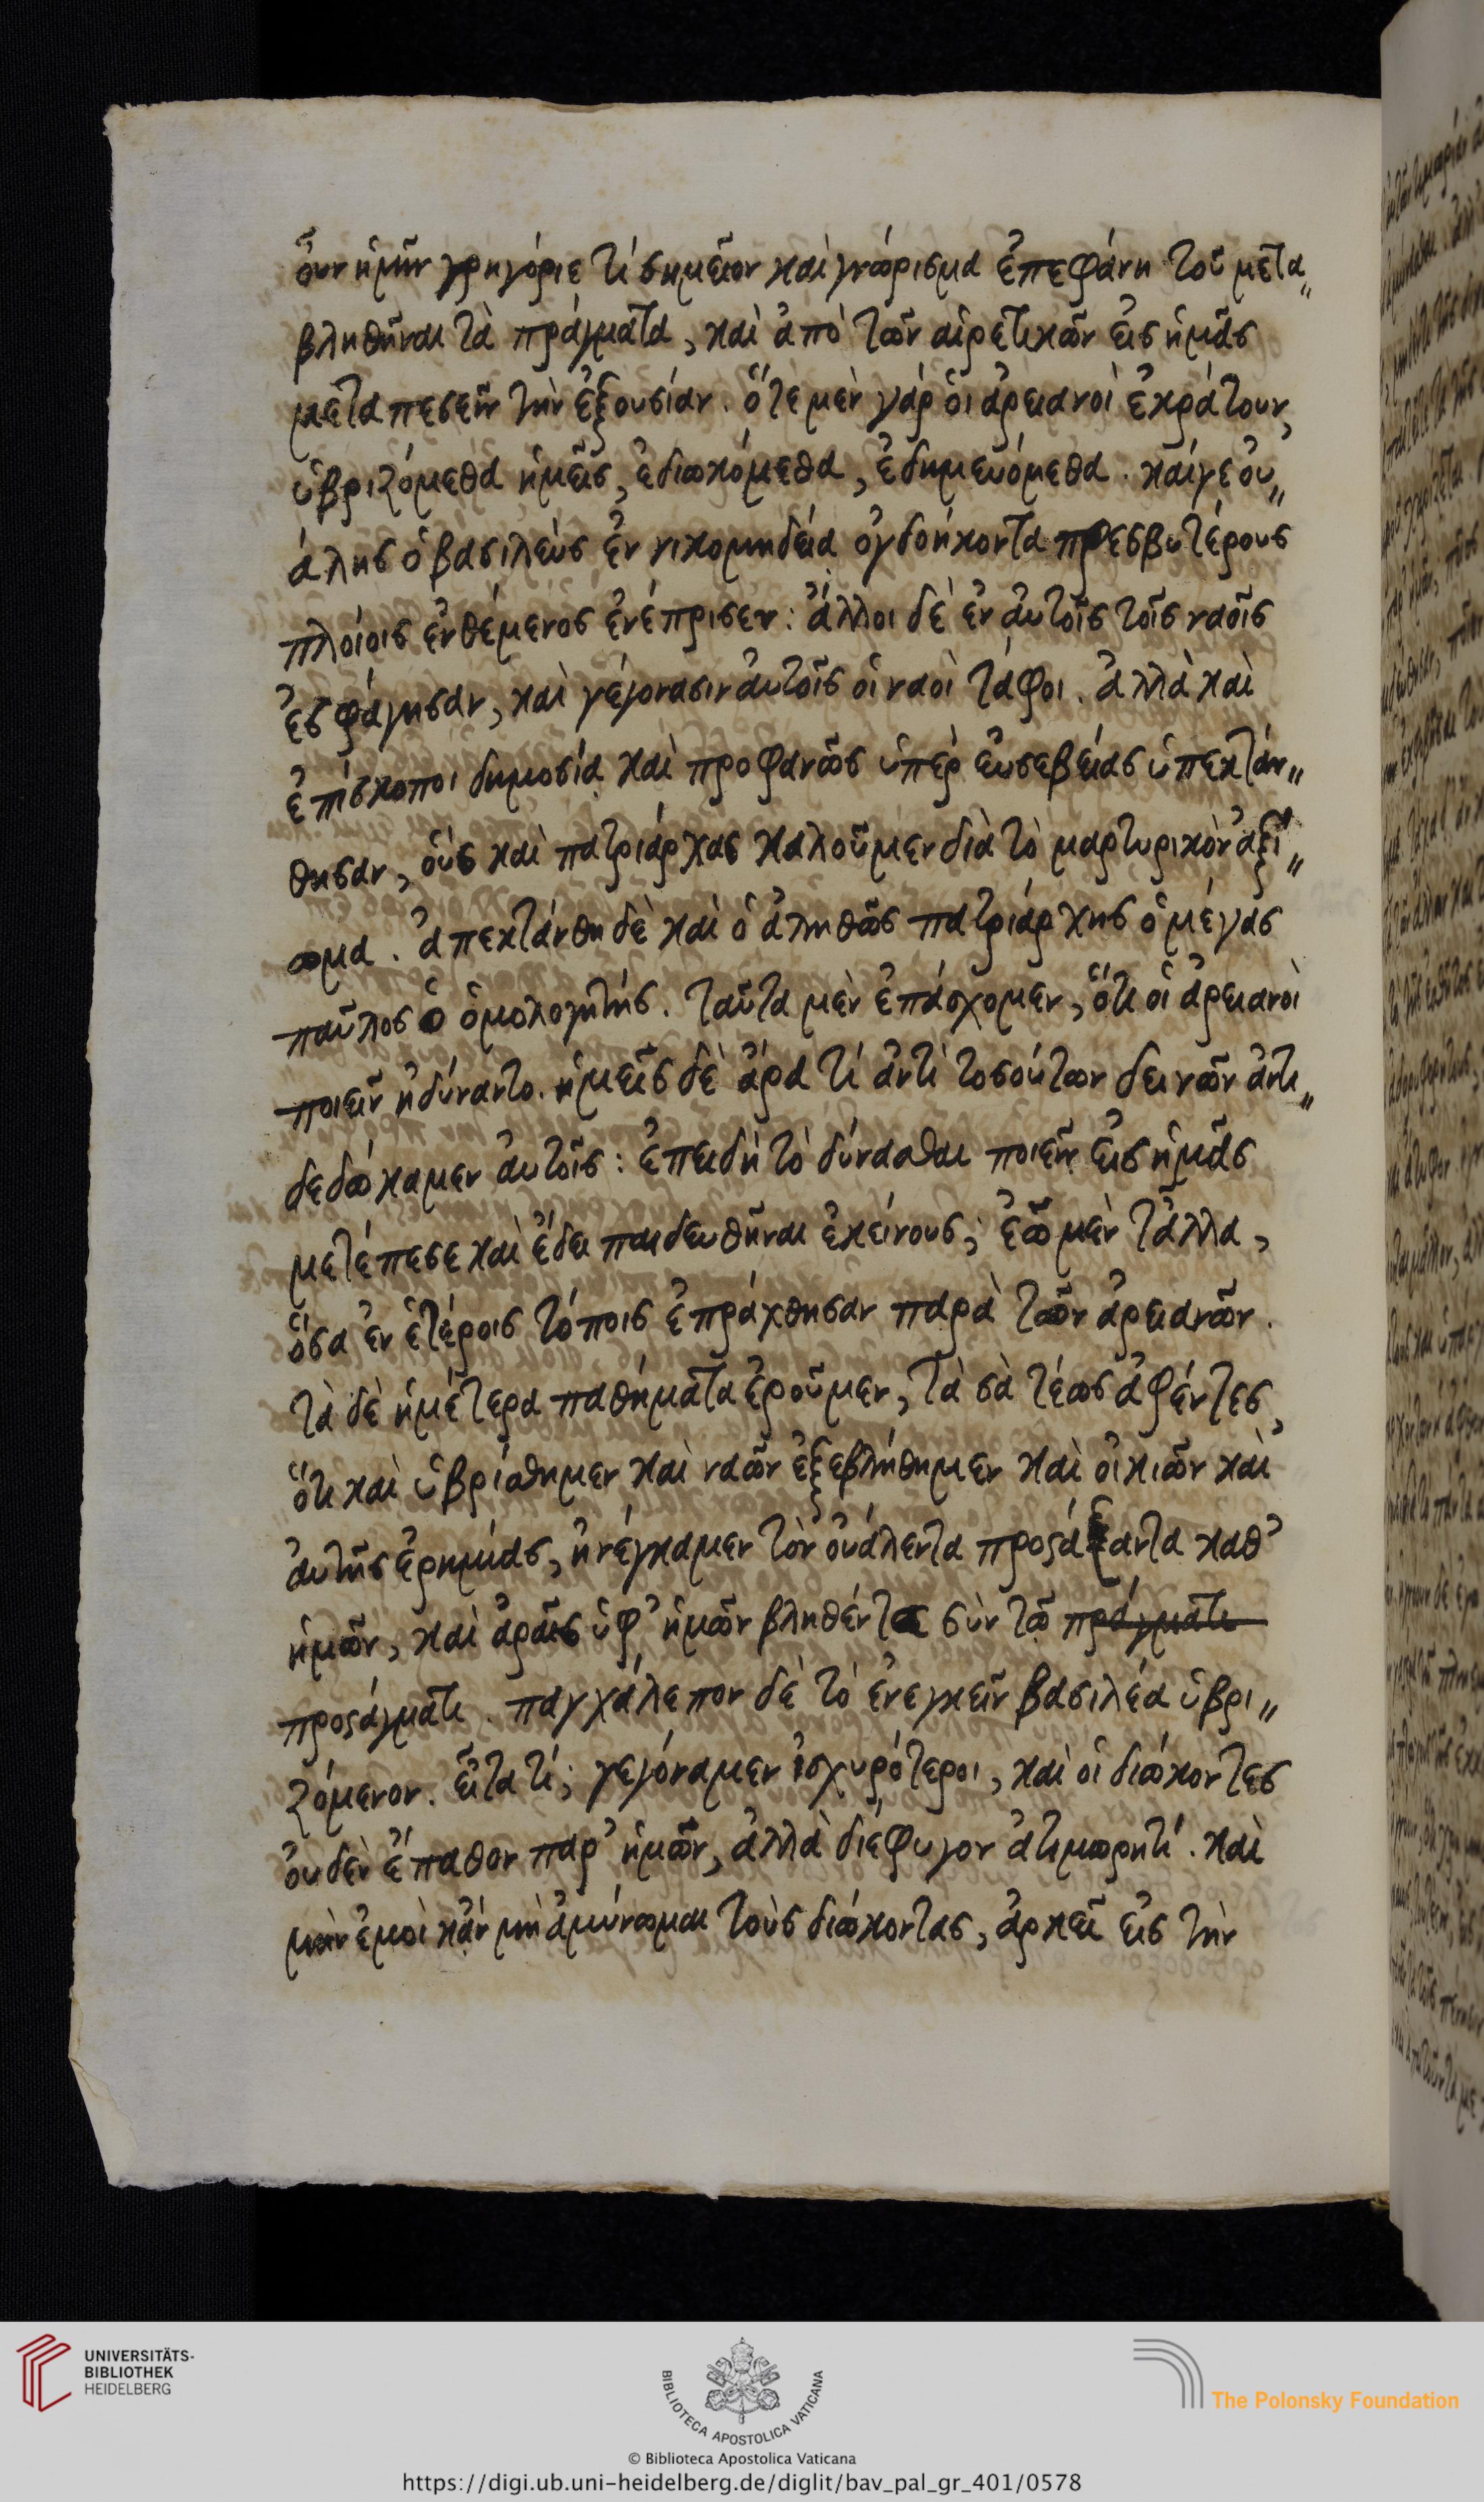 οὖν ἡμῖν γρηγόριε τί σημεῖον καὶ γνώρισμα ἐπεφάνη τοῦ μετα„
βληθῆναι τὰ πράγματα, καὶ ἀπὸ τῶν αἱρετικῶν εἰς ἡμᾶς
μεταπεσεῖν τὴν ἐξουσίαν. ὅτε μὲν γάρ οἱ ἀρειανοὶ ἐκράτουν,
ὑβριζόμεθα ἡμεῖς, ἐδιωκόμεθα, ἐδημευόμεθα. καίγε οὐ„
άλης ὁ βασιλεὺς ἐν νικομηδεία ὀγδοήκοντα πρεσβυτέρους
πλοίοις ἐνθέμενος ἐνέπρισεν: ἄλλοι δὲ ἐν αὐτοῖς τοῖς ναοῖς
ἐσφάγησαν, καὶ γέγονασιν αὐτοῖς οἱ ναοὶ τάφοι. ἀλλὰ καὶ
ἐπίσκοποι δημοσία καὶ προφανῶς ὑπὲρ εὐσεβείας ὑπεκτάν„
θησαν, οὓς καὶ πατριάρχας καλοῦμεν διὰ τὸ μαρτυρικὸν ἀξί„
ωμα. ἀπεκτάνθη δὲ καὶ ὁ ἀληθῶς πατριάρχης ὁ μέγας
παῦλος ὁ ὁμολογητής. ταῦτα μὲν ἐπάσχομεν, ὅτι οἱ ἀρειανοὶ
ποιεῖν ἠδύναντο. ἡμεῖς δὲ ἄρα τί ἀντὶ τοσούτων δεινῶν ἀντι„
δεδώκαμεν αὐτοῖς: ἐπειδὴ τὸ δύνασθαι ποιεῖν εἰς ἡμᾶς
μετέπεσε καὶ ἔδει παιδευθῆναι ἐκείνους; ἐῶ μὲν τἄλλα,
ὅσα ἐν ἑτέροις τόποις ἐπράχθησαν παρὰ τῶν ἀρειανῶν.
τὰ δὲ ἡμέτερα παθήματα ἐροῦμεν, τὰ σὰ τέως ἀφέντες,
ὅτι καὶ ὑβρίσθημεν καὶ ναῶν ἐξεβλήθημεν καὶ οἰκιῶν καὶ
αὐτῆς ἐρημίας, ἠνέγκαμεν τὸν οὐάλεντα προστάξαντα καθ'
ἡμῶν, καὶ ἀραῖς ὑφ' ἡμῶν βληθέντα σὺν τῶ πράγματι
προστάγματι. παγχάλεπον δὲ τὸ ἐνεγκεῖν βασιλέα ὑβρι„
ζόμενον. εἶτα τί; γεγόναμεν ἰσχυρότεροι, καὶ οἱ διώκοντες
οὐδὲν ἔπαθον παρ' ἡμῶν, ἀλλὰ διέφυγον ἀτιμωρητί. καὶ
μὴν ἐμοὶ κἂν μὴ ἀμύνωμαι τοὺς διώκοντας, ἀρκεῖ εἰς τὴν
UNIVERSITÄTS-
BIBLIOTHEK
HEIDELBERG
BIBLIOTECA APOSTOLICA VATICANA
The Polonsky Foundation
© Biblioteca Apostolica Vaticana
https://digi.ub.uni-heidelberg.de/diglit/bav_pal_gr_401/0578